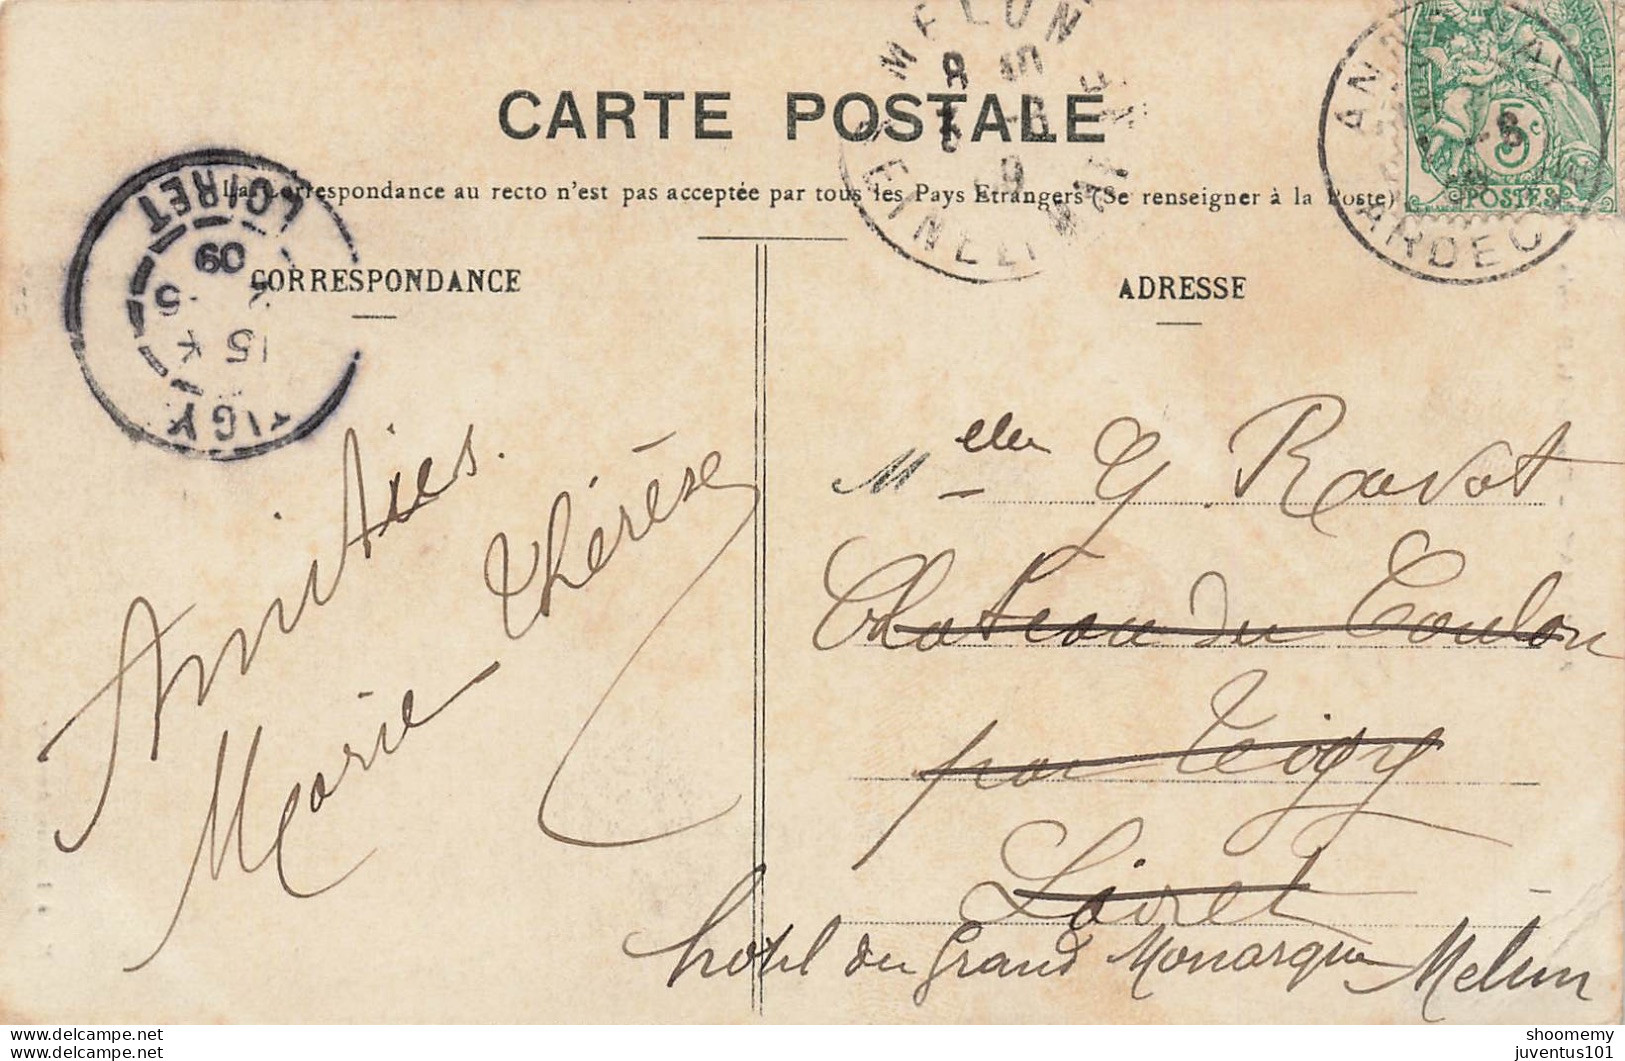 CARTE POSTALE
La Correspondance au recto n'est pas acceptée par tous les Pays Etrangers (Se renseigner à la Poste)
CORRESPONDANCE
ADRESSE
Amitiés.
Marie-Thérèse
Melles Y Ravot
Chateau du Coulon
par Tigy
Loiret
hotel du Grand Monarque Melun
TIGY
15 K
09
LOIRET
MELUN
ARDECHE
5c
POSTES
delcampe.net
juventus101
shoomemy
juventus101